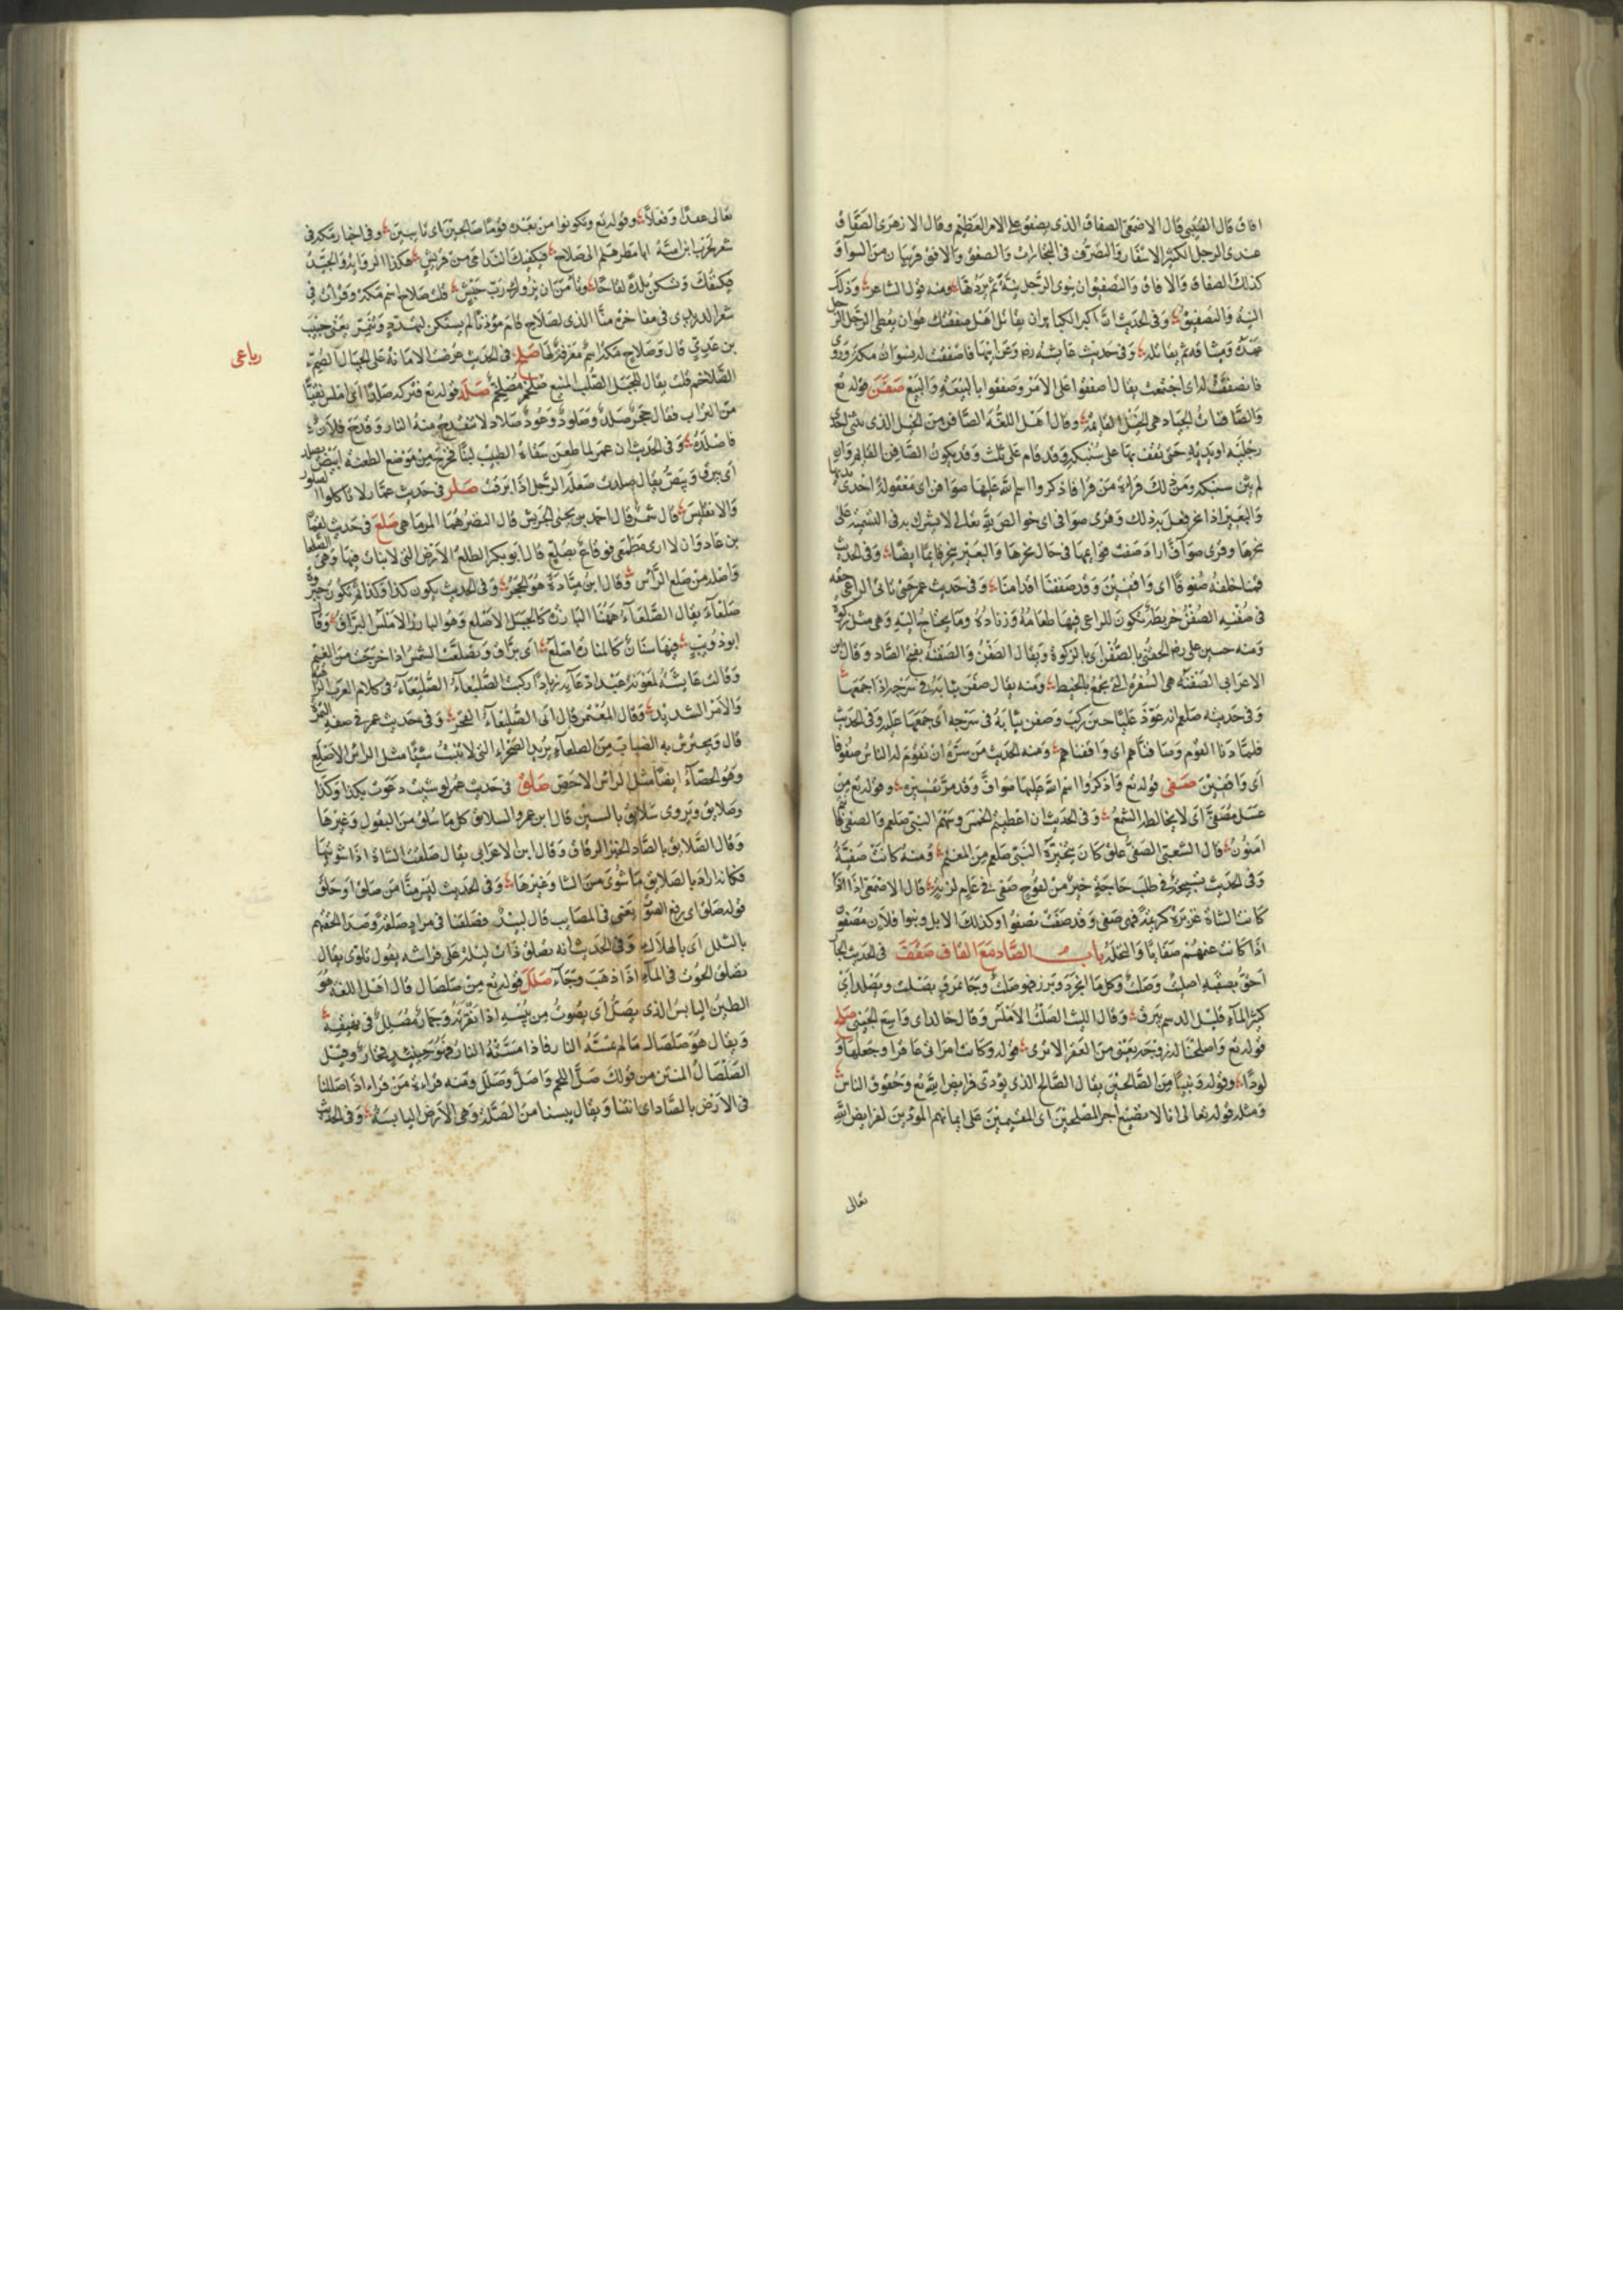 افاق قال القتيبي قال الاصمعي الصفاق الذي يصفق على الامر العظيم وقال الازهري الصفاق
عندي الرجل الكثير الاسفار والتصرف في التجارات والصفق والافق قريبان من السواء و
كذلك الصفاق والافاق والتصفيق ان ينوي الرجل نية ثم يردها ومنه قول الشاعر وذلك
النية والتصفيق وفي الحديث ان اكبر الكبائر ان يقاتل اهل صفقتك هو ان يعطي الرجل الرجل
عهده وميثاقه ثم يقاتله وفي حديث عايشه رضي وعن ابيها فاصفقت له نسوان مكة وروي
فانصفقت له اي اجتمعت يقال اصفقوا على الامر وصفقوا بالبيعة والبيع صفن قوله تع
والصافنات الجياد هي الخيل القائمة وقال اهل اللغة الصافن من الخيل الذي يثني احدى
رجليه او يديه حتى يقف بها على سنبكه وقد قام على ثلث وقد يكون الصافن القائم وان
لم يثن سنبكه ومن ذلك قراءة من قرا فاذكروا اسم الله عليها صوافن اي معقولة احدى يديها
والبعير اذا نحر فعل به ذلك وقرئ صوافي اي خوالص لله تعالى لا يشرك به في التسمية على
نحرها وقرئ صواف اراد صفت قوايمها في حال نحرها والبعير ينحر قايما ايضا وفي الحديث
قمنا خلفه صفونا اي واقفين وقد صففنا اقدامنا وفي حديث عمر حتى ياتي الراعي حقه
في صفنه الصفن خريطة تكون للراعي فيها طعامه وزناده وما يحتاج اليه وهي مثل ركوة
ومنه حسين علي رضي الحقني بالصفن اي بالركوة ويقال الصفن والصفنة بفتح الصاد وقال ابن
الاعرابي الصفنة هي السفرة التي تجمع بالخيط ومنه يقال صفن ثيابه في سرجه اذا جمعها
وفي حديثه صلعم انه عوذ عليا حين ركب وصفن ثيابه في سرجه اي جمعها عليه وفي الحديث
فلما دنا القوم وصافناهم اي واقفناهم ومنه الحديث من سره ان تقوم له الناس صفونا
اي واقفين صفي قوله تع واذكروا اسم الله عليها صواف وقد مر تفسيره وقوله تع من
عسل مصفى اي لا يخالطه الشمع وفي الحديث ان اعطيتم الخمس وسهم النبي صلعم والصفي فانتم
امنون قال الشعبي الصفي علق كان يتخيره النبي صلعم من المغنم ومنه كانت صفية
وفي الحديث تسبيحة في طلب حاجة خير من لقوح صفي في عام لزبة قال الاصمعي اذا
كانت الشاة غزيرة كريمة فهي صفي وقد صفت تصفوا وكذلك الابل وبنوا فلان مصفون
اذا كانت غنمهم صفايا والنخلة باب الصاد مع القاف صقف في الحديث الجار
احق بصقبه اصلت وصلت وكل ما انجرد وبرز فهو صلت وجاء بمرق يصلت ويصلد اي
كثير الماء قليل الدسم يبرق وقال الليث الصلت الاملس وقال خالد اي واسع الجبين صلح
قوله تع واصلحنا له زوجه يعني من العقر الا ترى قوله وكانت امراتي عاقرا وجعلها و
لودا وقوله ونبيا من الصالحين يقال الصالح الذي يؤدي فرايض الله تع وحقوق الناس
ومثله قوله تعالى انا لا نضيع اجر المصلحين اي المقيمين على ايمانهم المؤدين لفرايض الله
تعالى
تعالى عقدا وفعلا وقوله تع وتكونوا من بعده قوما صالحين اي تايبين وفي اخبار مكة في
شعر لحرب ابن امية ابا مطر هلم الى صلاح فيكفيك الندامى من قريش هكذا الرواية والجيد
فيكنفك وتسكن بلدة لقاحا وتامن ان يزورك رب جيش قلت صلاح اسم مكة وقرات في
شعر الدبيري في مفاخره منا الذي بصلاح قام مؤذنا لم يستكن لتهدد وتنمر يعني خبيب
بن عدي قال وصلاح مكة اسم معرفة لها صلخم في الحديث عرضت الامانة على الجبال الصم
رباعي
الصلاخم قلت يقال للجبل الصلب المنيع صلخم ومصلخم صلد قوله تع فتركه صلدا اي املس نقيا
من التراب فقال حجر صلد وصلود وعود صلاد لا تنقدح منه النار وقدح فلان
فاصلد وفي الحديث ان عمر لما طعن سقاه الطبيب لبنا فخرج من موضع الطعنة ابيض يصلد
اي يبرق ويبص يقال صلدت صلعة الرجل اذا برقت صلر في حديث عمار لا تاكلوا الصلور
والانقليس قال شمر قال احمد بن يحيى الحريش قال النضر هما المرماهي صلع في حديث لقمان
بن عاد وان لا ارى مطمعي فوقاع بصلع قال ابو بكر الصلع الارض التي لا نبات فيها وهي الصلعا
واصله من صلع الراس وقال ابن ميادة هو الحجر وفي الحديث يكون كذا وكذا ثم تكون جبروة
صلعاء يقال الصلعاء ههنا البارزة كالجبل الاصلع وهو البارز الاملس البراق وقال
ابو ذويب فيها سنان كالمنارة اصلع اي براق وتصلعت الشمس اذا خرجت من الغيم
وقالت عايشة لمعوية عند ادعايه زيادا ركبت الصليعاء الصليعاء في كلام العرب الداهية
والامر الشديد وقال المعتمر قال ابي الصليعاء الفخر وفي حديث عمر في صفة التمر
قال ويحترش به الضباب من الصلعاء يريد الصحراء التي لا تنبت شيئا مثل الراس الاصلع
وهو الحصاء ايضا مثل الراس الاحص صلق في حديث عمر لو شيت دعوت بكذا وكذا
وصلايق ويروى سلايق بالسين قال ابن عمرو السلايق كل ما سلق من البقول وغيرها
وقال الصلايق بالصاد الخبز الرقاق وقال ابن الاعرابي يقال صلقت الشاة اذا شويتها
فكانه اراد بالصلايق ما شوي من الشا وغيرها وفي الحديث ليس منا من صلق او حلق
قوله صلق اي رفع الصوت يعني في المصايب قال لبيد فصلقنا في مراد صلقة وصداء الحقتهم
بالثلل اي بالهلاك وفي الحديث انه تصلق ذات ليلة على فراشه يقول تلوى يقال
تصلق الحوت في الماء اذا ذهب وجاء صلل قوله تع من صلصال قال اهل اللغة هو
الطين اليابس الذي يصل اي يصوت من يبسه اذا نقرته وحمار مصلل في نهيقه
ويقال هو صلصال ما لم تمسه النار فاذا مسته النار فهو حينئذ فخار وقيل
الصلصال المنتن من قولك صل اللحم واصل وصلل ومنه قراءة من قراء اذا صللنا
في الارض بالصاد اي انتنا ويقال يبسنا من الصلة وهي الارض اليابسة وفي الحديث